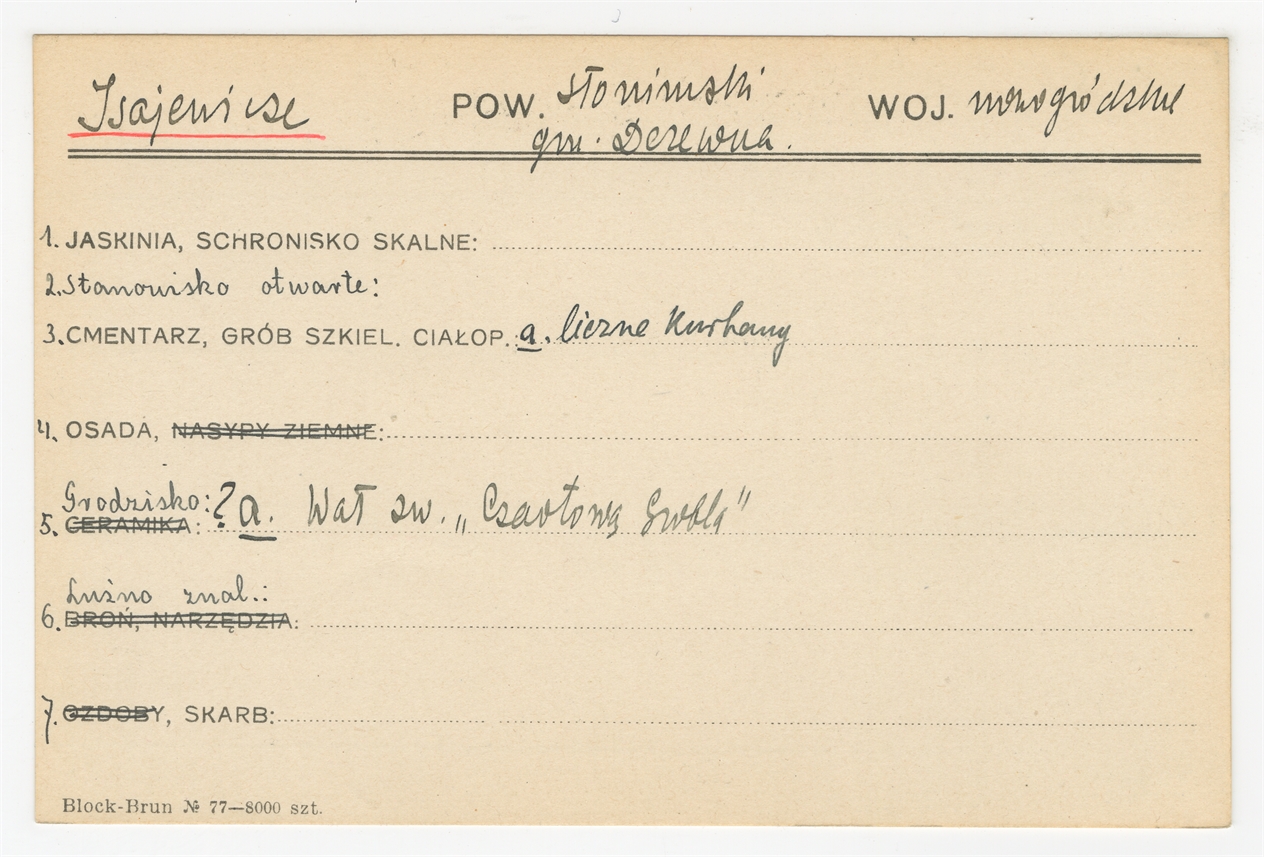 Isajewicze POW. słonimski WOJ. nowogródzkie
gm. Derewna.
1. JASKINIA, SCHRONISKO SKALNE:
2. Stanowisko otwarte:
3. CMENTARZ, GRÓB SZKIEL. CIAŁOP.: a. liczne kurhany
4. OSADA, NASYPY ZIEMNE:
Grodzisko: ? a. Wał zw. „Czartową Groblą"
5. CERAMIKA:
Luźno znal.:
6. BROŃ, NARZĘDZIA:
7. OZDOBY, SKARB:
Block-Brun № 77—8000 szt.